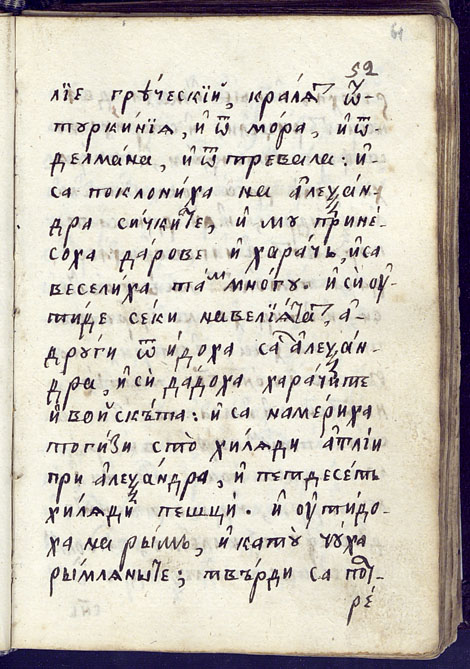 61
52
лїе гръ́ческїй, кралѧ̀т ѿ-
туркинїѧ, и҆ ѿ мо́ра, и҆ ѿ-
делма́на, и҆ ѿ тревала: и҆-
са поклони́ха на а҆леѯа́н-
дра си́чките, и҆ му прине́-
соха да́рове и҆ хара́чь, и҆са
веселиха та́м мно́гу. и҆ сѝ оу҆-
ти́де секи навелїѧ́та, а҆-
дру́ги ѿ и́доха са а҆леѯа́н-
дра, и҆ сѝ да́доха хара́чите
и҆ вой́скѣта: и҆ са наме́риха
тоги́зи сто̀ хи́лѧди а҆тлїи
при а҆леѯа́ндра, и҆ петдесе́ть
хи́лѧди пешщѝ. и҆ оу҆тидо-
ха на рымъ, и҆ кату̀ чу́ха
ры́млѧныте; твъ́рди са пот-
ре́